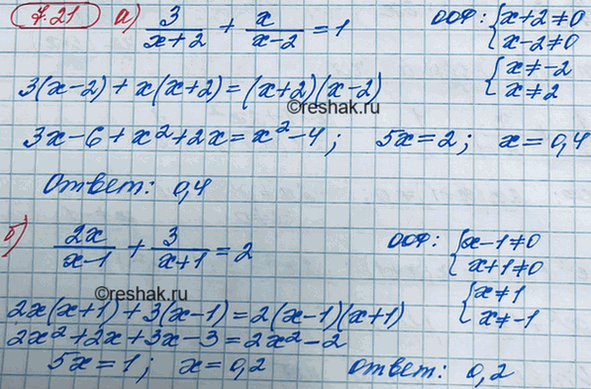 7.21 а) 3/(x+2) + x/(x-2) = 1 ООФ: { x+2≠0
x-2≠0
{ x≠-2
x≠2
3(x-2) + x(x+2) = (x+2)(x-2)
©reshak.ru
3x-6+x²+2x=x²-4; 5x=2; x=0,4
Ответ: 0,4
б) 2x/(x-1) + 3/(x+1) = 2 ООФ: { x-1≠0
x+1≠0
{ x≠1
x≠-1
©reshak.ru
2x(x+1)+3(x-1)=2(x-1)(x+1)
2x²+2x+3x-3=2x²-2
5x=1; x=0,2 Ответ: 0,2